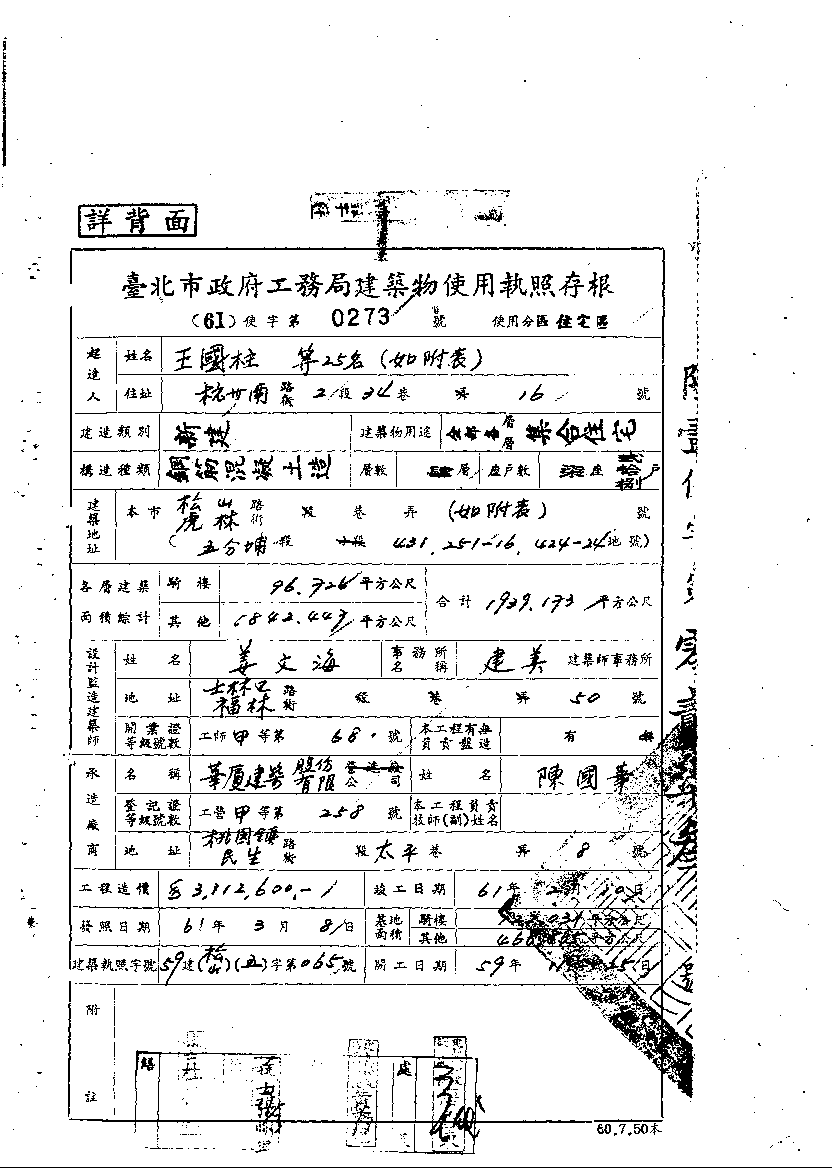 詳背面
臺北市政府工務局建築物使用執照存根
(61)使字第 0273 號 使用分區 住宅區
起造人 姓名 王國柱 等25名(如附表)
住址 杭州南 路街 2 段 34 巷 弄 16 號
建造類別 新建 建築物用途 全部各層 集合住宅
構造種類 鋼筋混凝土造 層數 層 座戶數 座 戶
建築地址 本市 松山 虎林 路街 段 巷 弄 (如附表) 號
(五分埔段 小段 431, 251-16, 424-24 地號)
各層建築面積綜計 騎樓 96.726 平方公尺 合計 1939.173 平方公尺
其他 1842.447 平方公尺
設計監造建築師 姓名 姜文海 事務所名稱 建美 建築師事務所
地址 士林区 福林 路街 段 巷 弄 50 號
開業證等級號數 工師甲等第 68 號 本工程有無負責監造 有 無
承造廠商 名稱 華廈建築 股份有限公司 姓名 陳國華
登記證等級號數 工營甲等第 258 號 本工程負責技師(副)姓名
地址 桃園鎮 民生 路街 段 太平 巷 弄 8 號
工程造價 $3,812,600.- 竣工日期 61年 2月 10日
發照日期 61年 3月 8日 基地面積 騎樓 平方公尺
其他 平方公尺
建築執照字號 59建(松山)(五)字第065號 開工日期 59年 日
附註
60.7.50本